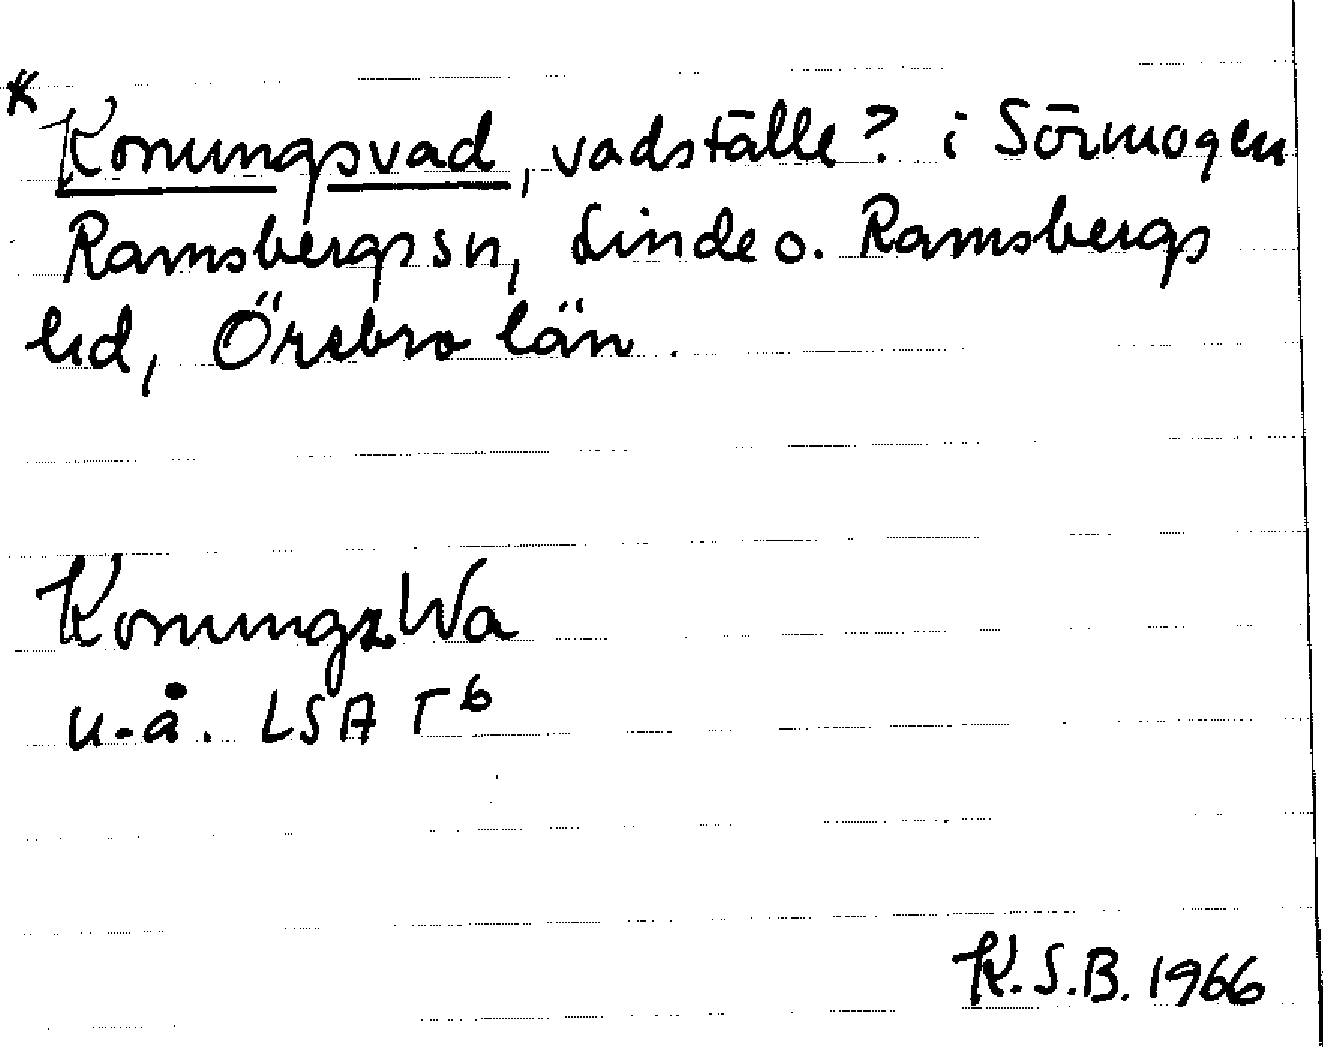 * Konungsvad, vadställe? i Sörmogen
Ramsbergs sn, Linde o. Ramsbergs
hd, Örebro län.
Konungz Wa
u.å. LSA T 6
K.S.B. 1966